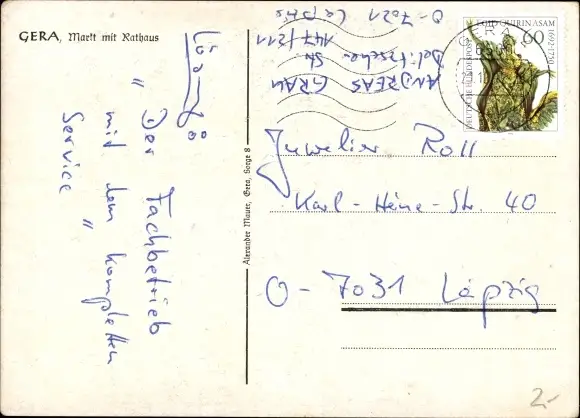 GERA, Markt mit Rathaus
Lösung
" Der Fachbetrieb
mit dem kompletten
Service "
Alexander Mauer, Gera, Sorge 8
ANDREAS GRAU
Delitzscher
Str. 147/211
O-7021
EGID QUIRIN ASAM
1692-1750
60
DEUTSCHE BUNDESPOST
GERA
Juwelier Roll
Karl-Heine-Str. 40
O-7031 Leipzig
2,-